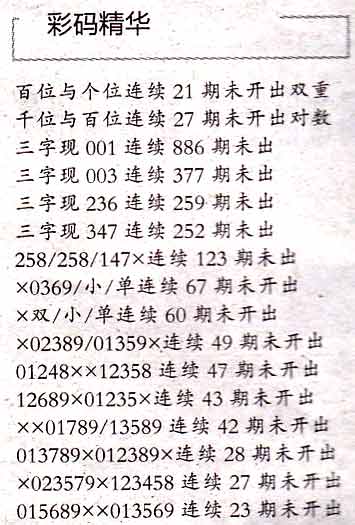 彩码精华
百位与个位连续 21 期未开出双重
千位与百位连续 27 期未开出对数
三字现 001 连续 886 期未出
三字现 003 连续 377 期未出
三字现 236 连续 259 期未出
三字现 347 连续 252 期未出
258/258/147×连续 123 期未出
×0369/小/单连续 67 期未开出
×双/小/单连续 60 期未开出
×02389/01359×连续 49 期未开出
01248××12358 连续 47 期未开出
12689×01235×连续 43 期未开出
××01789/13589 连续 42 期未开出
013789×012389×连续 28 期未开出
×023579×123458 连续 27 期未开出
015689××013569 连续 23 期未开出